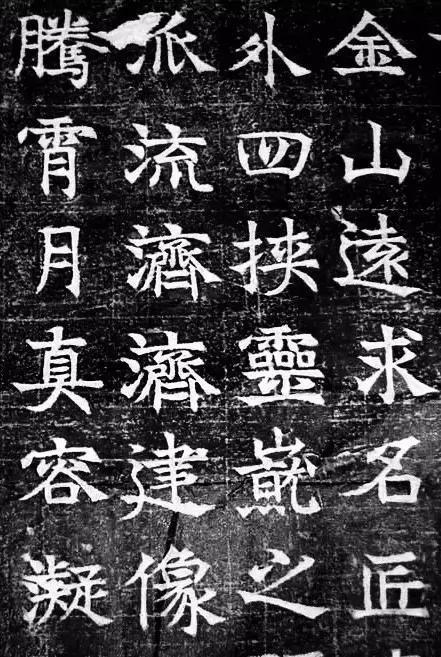 金山遠求名匠
外四挟靈之
派流濟濟建像
騰霄月真容凝